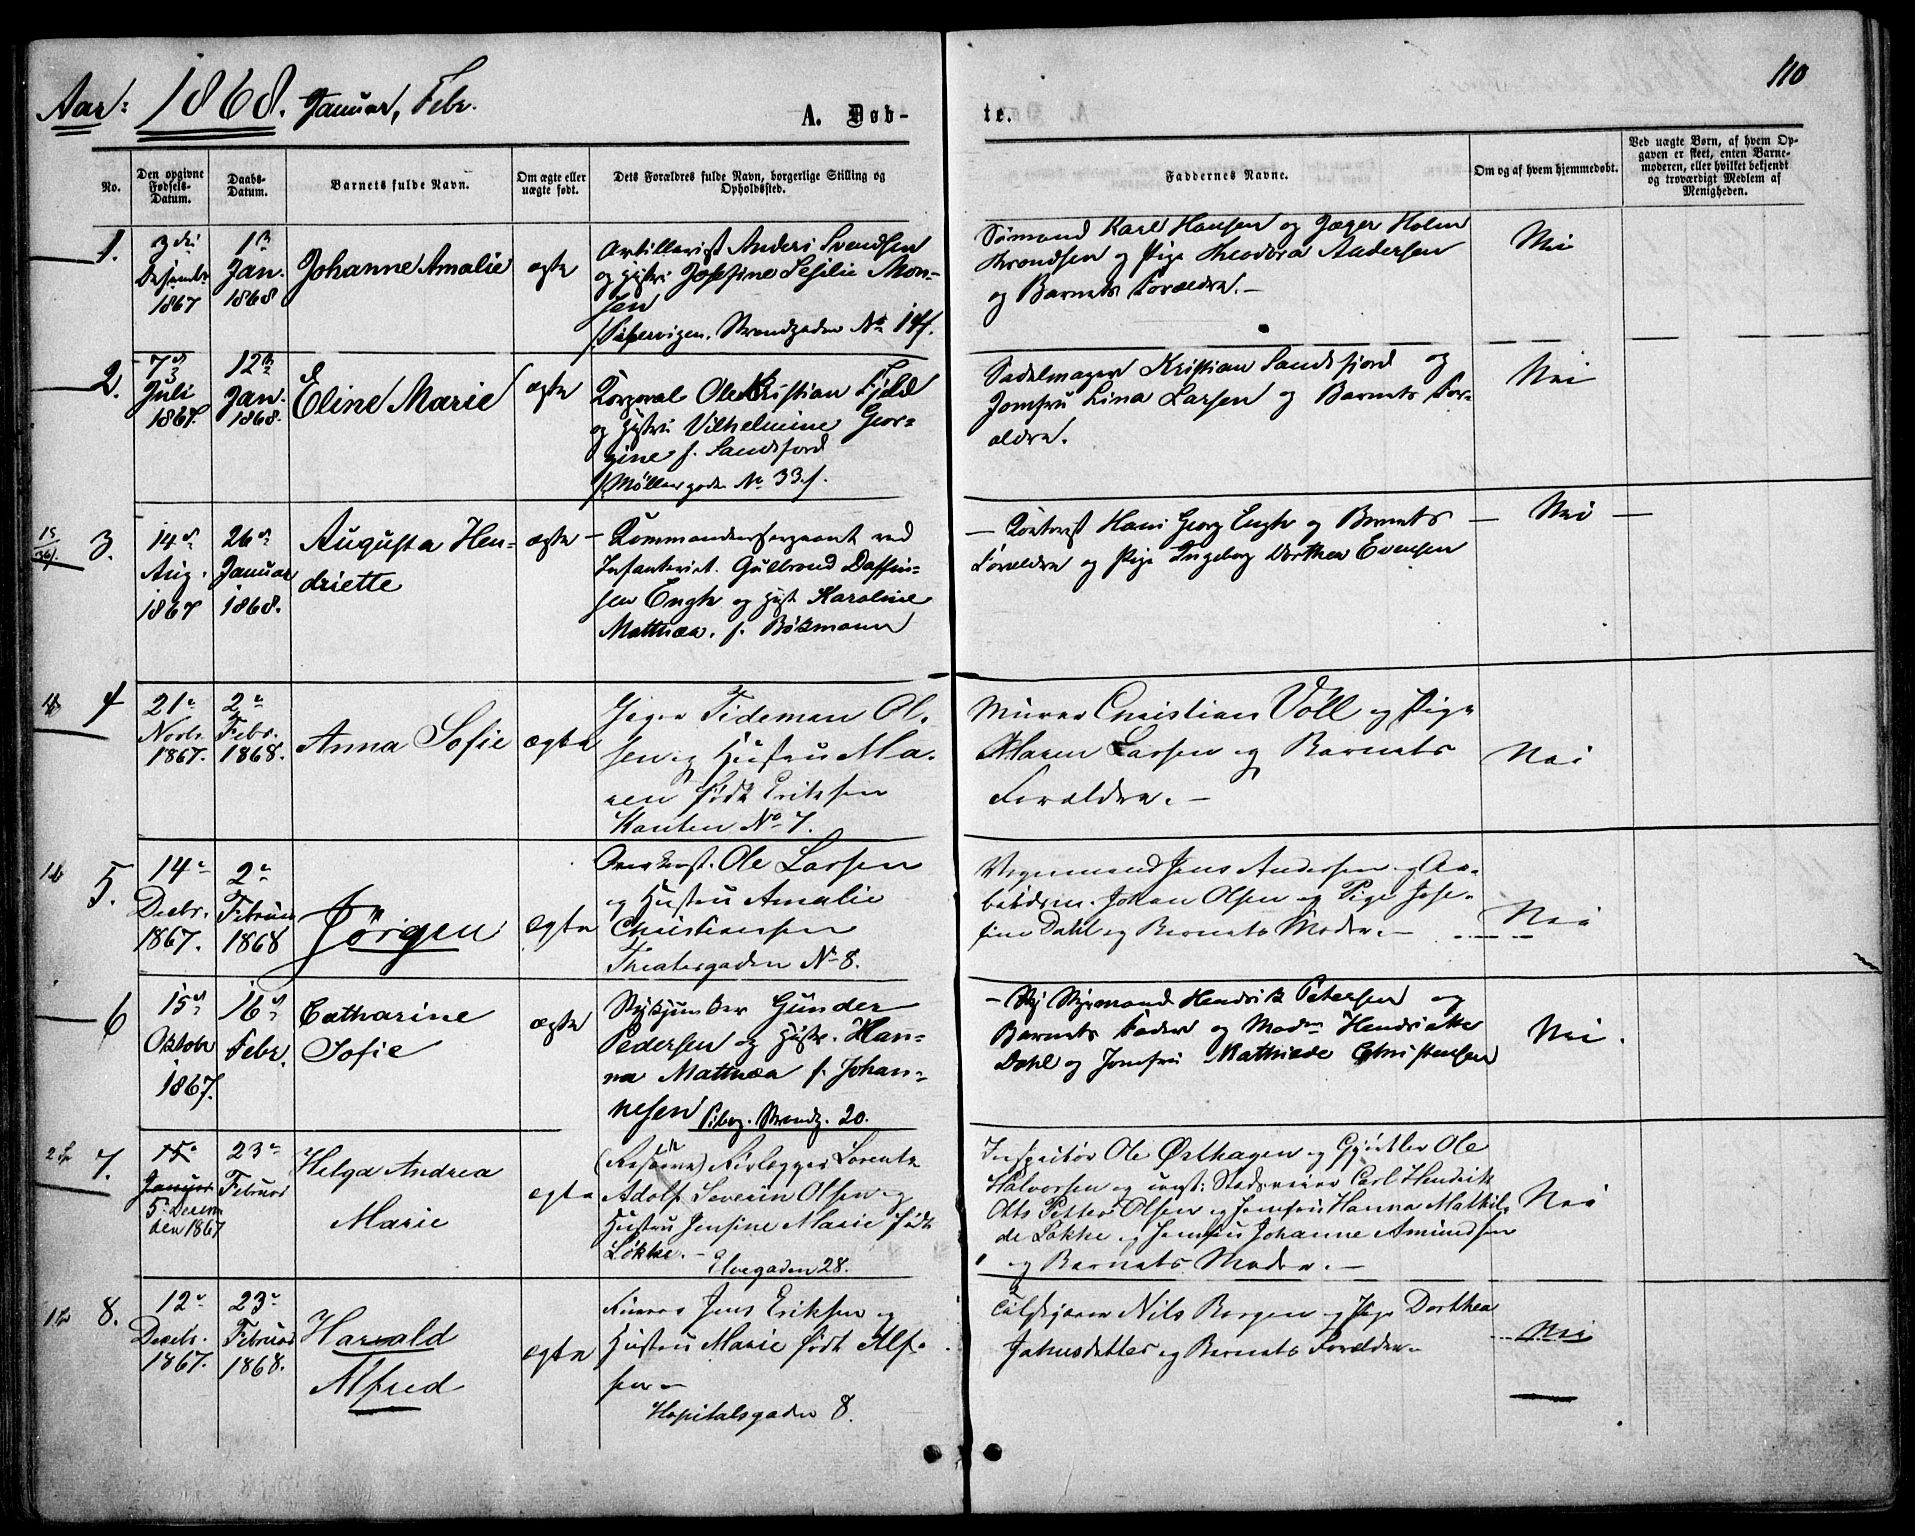 Aar: 1868. Januar, Febr.
110
A. Døb-
te.
No.
Den opgivne Fødsels-Datum.
Daabs-Datum.
Barnets fulde Navn.
Om ægte eller uægte født.
Dets Forældres fulde Navn, borgerlige Stilling og Opholdssted.
Faddernes Navne.
Om og af hvem hjemmedøbt.
Ved uægte Børn, af hvem Opgaven er skeet, enten Barnemoderen, eller hvilket bekjendt og troværdigt Medlem af Menigheden.
1.
3
1867
1
Jan.
1868
Johanne Amalie
ægte
Artillerist Anders Svendsen
og Josefine Sesilie Mon-
sen
Pipervigen. Strandgaden No 14
Sømand Karl Hansen og Jæger Holm
og Pige Theodora Andersen
og Barnets Forældre.
Nei
2.
7
Juli
1867.
12
Jan.
1868.
Eline Marie
ægte
Korporal Ole Kristian Fjeld
og Vilhelmine Geor-
gine f. Sandefjord
Møllergaden No 33
Sadelmager Kristian Sandefjord og
Jomfru Lina Larsen og Barnets For-
ældre.
Nei
15
3.
14
Aug.
1867
26
Januar
1868.
Augusta Hen-
driette
ægte
Kommandersergeant ved
Infanteriet. Gulbrand
Engh og Karoline
Mathea. f. Bökmann
Hans Georg Engh og Barnets
Forældre og Pige Ingeborg Dorthea Evensen
Nei
4
21
Novbr.
1867.
2
Febr.
1868.
Anna Sofie
ægte
Jæger Tideman Ol-
sen og Hustru Ma-
ren født Eriksen
No 7.
Murer Christian Voll og Pige
Maren Larsen og Barnets
Forældre.
Nei
5.
14
Decbr.
1867.
2
Februar
1868
Jörgen
ægte
Ole Larsen
og Hustru Amalie
Christiansen
Theatergaden No 8.
Vognmand Jens Andersen og Ar-
Johan Olsen og Pige Jose-
fine Dahl og Barnets Moder.
Nei
6
15
Oktober
1867.
16
Febr.
Catharine
Sofie
ægte
Stykjunker Gunder
Pedersen og Han-
na Mathea f. Johan-
nesen Piberv. Strandg. 20.
Styrmand Hendrik Petersen og
Barnets Fader og Hendriette
Dahl og Jomfru Mathilde Christensen
Nei.
7.
15
Januar
5 Decem
ber 1867
23
Februar
Helga Andrea
Marie
ægte
Lorentz
Adolf Severin Olsen og
Hustru Jensine Marie født
Løkke.
Elvegaden 28.
Inspektør Ole Østhagen og Gjørtler Ole
Halvorsen og Carl Hendrik
Petter Olsen og Jomfru Hanna Mathil-
de Løkke og Jomfru Johanne Amundsen
og Barnets Moder.
Nei
8.
12
Decbr.
1867.
23
Februar
1868.
Harald
Alfred
ægte
Jens Eriksen og
Hustru Marie født Alf-
sen
Hospitalsgaden 8.
Nils Borgen og Pige Dorthea
og Barnets Forældre
Nei